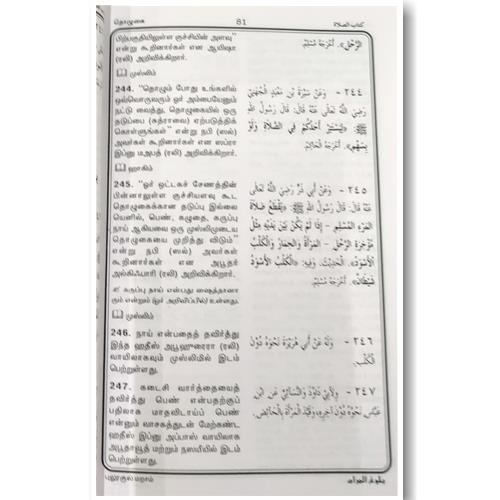 தொழுகை
81
كتاب الصلاة
பிற்பகுதியிலுள்ள குச்சியின் அளவு"
என்று கூறினார்கள் என ஆயிஷா
(ரலி) அறிவிக்கிறார்.
முஸ்லிம்
244. "தொழும் போது உங்களில்
ஒவ்வொருவரும் ஓர் அம்பையேனும்
நட்டு வைத்து, தொழுகையில் ஒரு
தடுப்பை (சுத்ராவை) ஏற்படுத்திக்
கொள்ளுங்கள்" என்று நபி (ஸல்)
அவர்கள் கூறினார்கள் என ஸப்ரா
இப்னு மஅபத் (ரலி) அறிவிக்கிறார்.
ஹாகிம்
245. "ஓர் ஒட்டகச் சேணத்தின்
பின்னாலுள்ள குச்சியளவு கூட
தொழுகைக்கான தடுப்பு இல்லை
யெனில், பெண், கழுதை, கருப்பு
நாய் ஆகியவை ஒரு முஸ்லிமுடைய
தொழுகையை முறித்து விடும்"
என்று நபி (ஸல்) அவர்கள்
கூறினார்கள் என அபூதர்
அல்கிஃபாரி (ரலி) அறிவிக்கிறார்.
கருப்பு நாய் என்பது ஷைத்தானா
கும் என்றும் (ஓர் அறிவிப்பில்) உள்ளது.
முஸ்லிம்
246. நாய் என்பதைத் தவிர்த்து
இந்த ஹதீஸ் அபூஹுரைரா (ரலி)
வாயிலாகவும் முஸ்லிமில் இடம்
பெற்றுள்ளது.
247. கடைசி வார்த்தையைத்
தவிர்த்து பெண் என்பதற்குப்
பதிலாக மாதவிடாய்ப் பெண்
என்னும் வாசகத்துடன் மேற்கண்ட
ஹதீஸ் இப்னு அப்பாஸ் வாயிலாக
அபூதாவூத் மற்றும் நஸயீயில் இடம்
பெற்றுள்ளது.
الرَّحْلِ». أَخْرَجَهُ مُسْلِمٌ.
٢٤٤ - وَعَنْ سَبْرَةَ بْنِ مَعْبَدٍ الْجُهَنِيِّ
رَضِيَ اللَّهُ تَعَالَى عَنْهُ قَالَ: قَالَ رَسُولُ اللَّهِ
ﷺ: «لِيَسْتَتِرْ أَحَدُكُمْ فِي الصَّلَاةِ وَلَوْ
بِسَهْمٍ». أَخْرَجَهُ الْحَاكِمُ.
٢٤٥ - وَعَنْ أَبِي ذَرٍّ رَضِيَ اللَّهُ تَعَالَى
عَنْهُ قَالَ: قَالَ رَسُولُ اللَّهِ ﷺ: «يَقْطَعُ صَلَاةَ
المَرْءِ المُسْلِمِ - إِذَا لَمْ يَكُنْ بَيْنَ يَدَيْهِ مِثْلُ
مُؤْخِرَةِ الرَّحْلِ - المَرْأَةُ وَالحِمَارُ وَالْكَلْبُ
الأَسْوَدُ». الْحَدِيثَ. وَفِيهِ: «الْكَلْبُ الْأَسْوَدُ
شَيْطَانٌ». أَخْرَجَهُ مُسْلِمٌ.
٢٤٦ - وَلَهُ عَنْ أَبِي هُرَيْرَةَ نَحْوُهُ دُونَ
الْكَلْبِ.
٢٤٧ - وَلِأَبِي دَاوُدَ وَالنَّسَائِيِّ عَنِ ابْنِ
عَبَّاسٍ نَحْوُهُ دُونَ آخِرِهِ، وَقَيَّدَ الْمَرْأَةَ بِالْحَائِضِ.
புலூகுல மராம்
بلوغ المرام